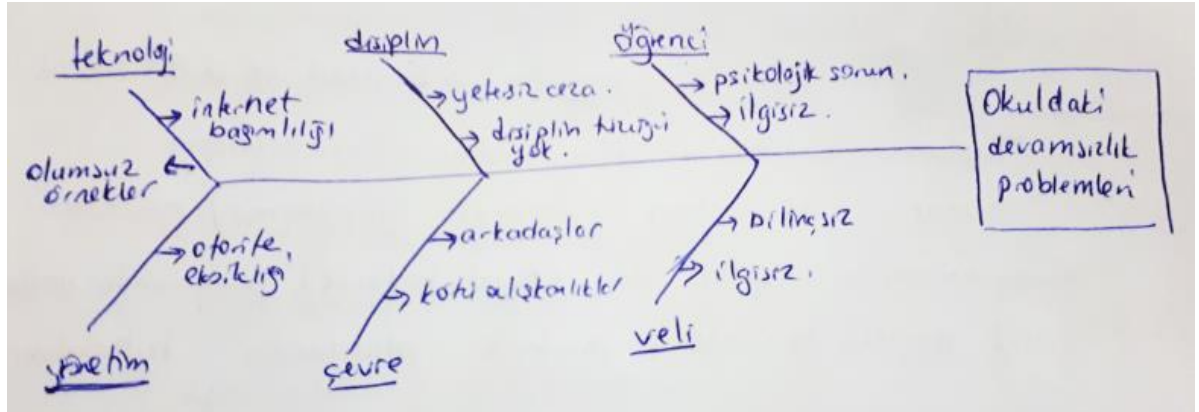 teknoloji
internet
bağımlılığı
olumsuz
örnekler
disiplin
yetersiz ceza.
disiplin
yok.
öğrenci
psikolojik sorun.
ilgisiz.
Okuldaki
devamsızlık
problemleri
otorite
eksikliği
yönetim
arkadaşlar
kötü alışkanlıklar
çevre
bilinçsiz
ilgisiz.
veli